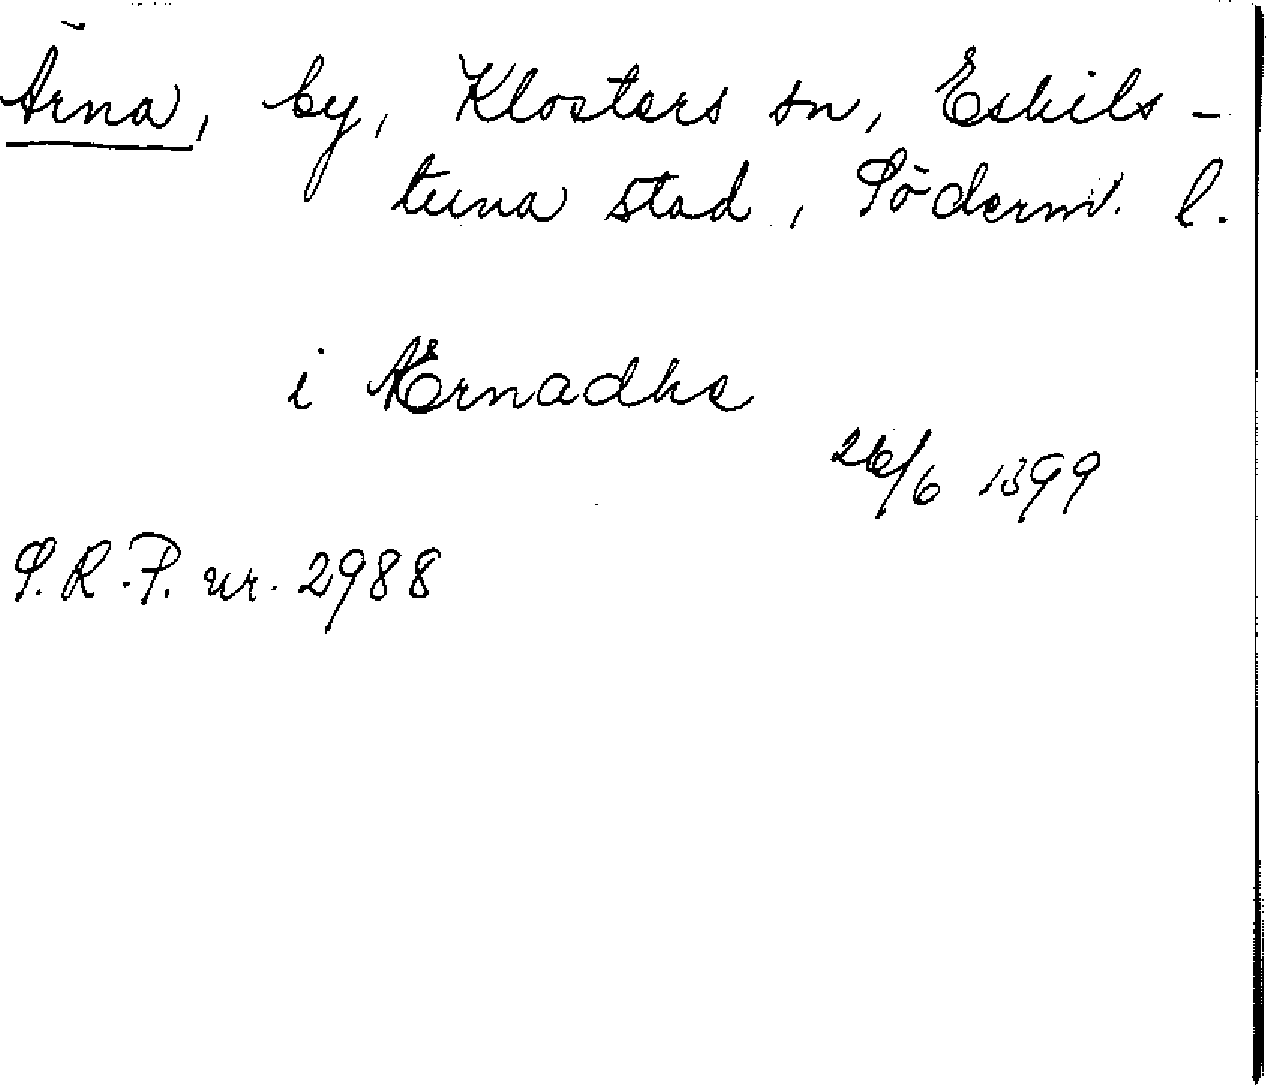 Ärna, by, Klosters sn, Eskils-
tuna stad, Söderml. l.
i Ærnadhe
26/6 1399
S.R.P. nr. 2988